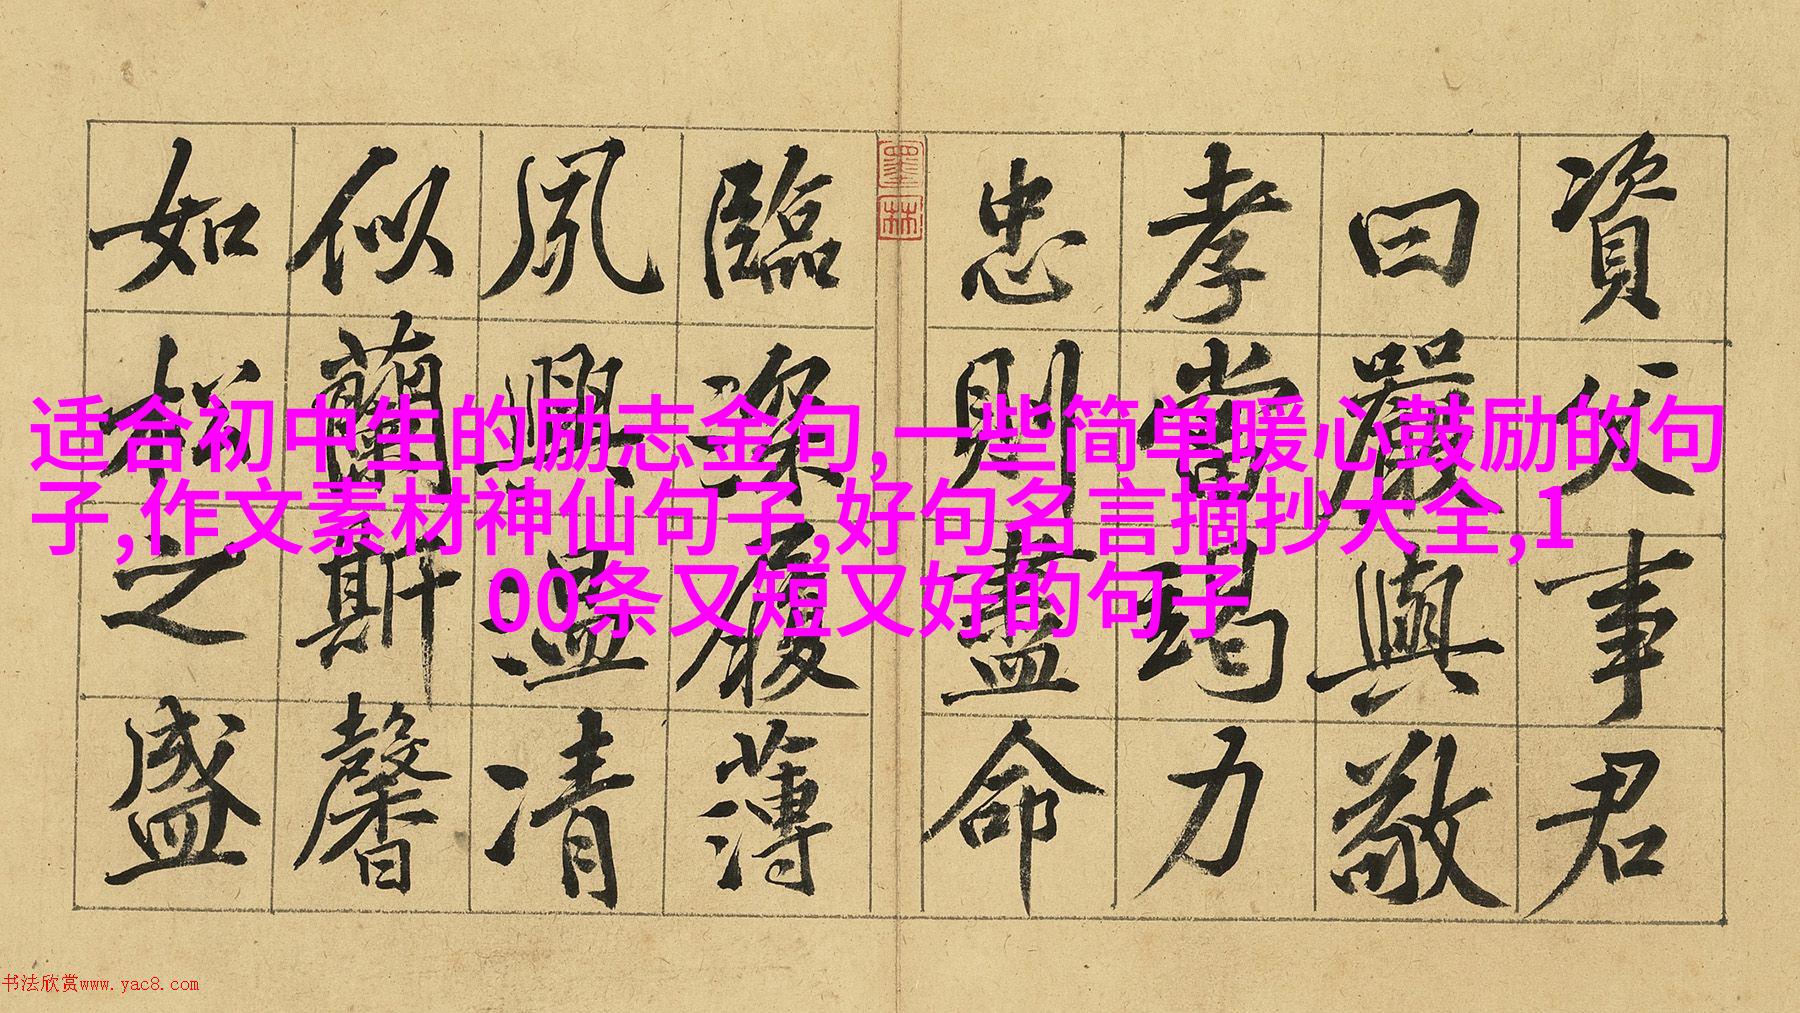 資父事君
曰嚴與敬
孝當竭力
忠則盡命
墨林
臨深履薄
夙興温凊
似蘭斯馨
如松之盛
适合初中生的励志金句,一些简单暖心鼓励的句
子,作文素材神仙句子,好句名言摘抄大全,1
00条又短又好的句子
书法欣赏www.yac8.com